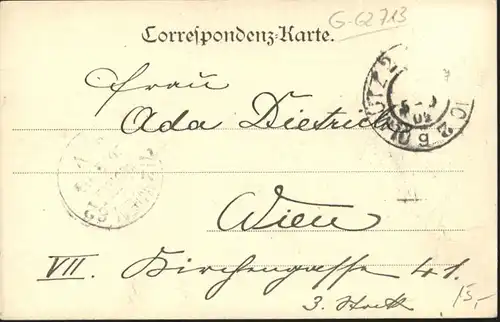 G-G2713
Correspondenz-Karte.
Frau
Ada Dietrich
Wien
VII. Kirchengasse 41.
3. Stock
15,-